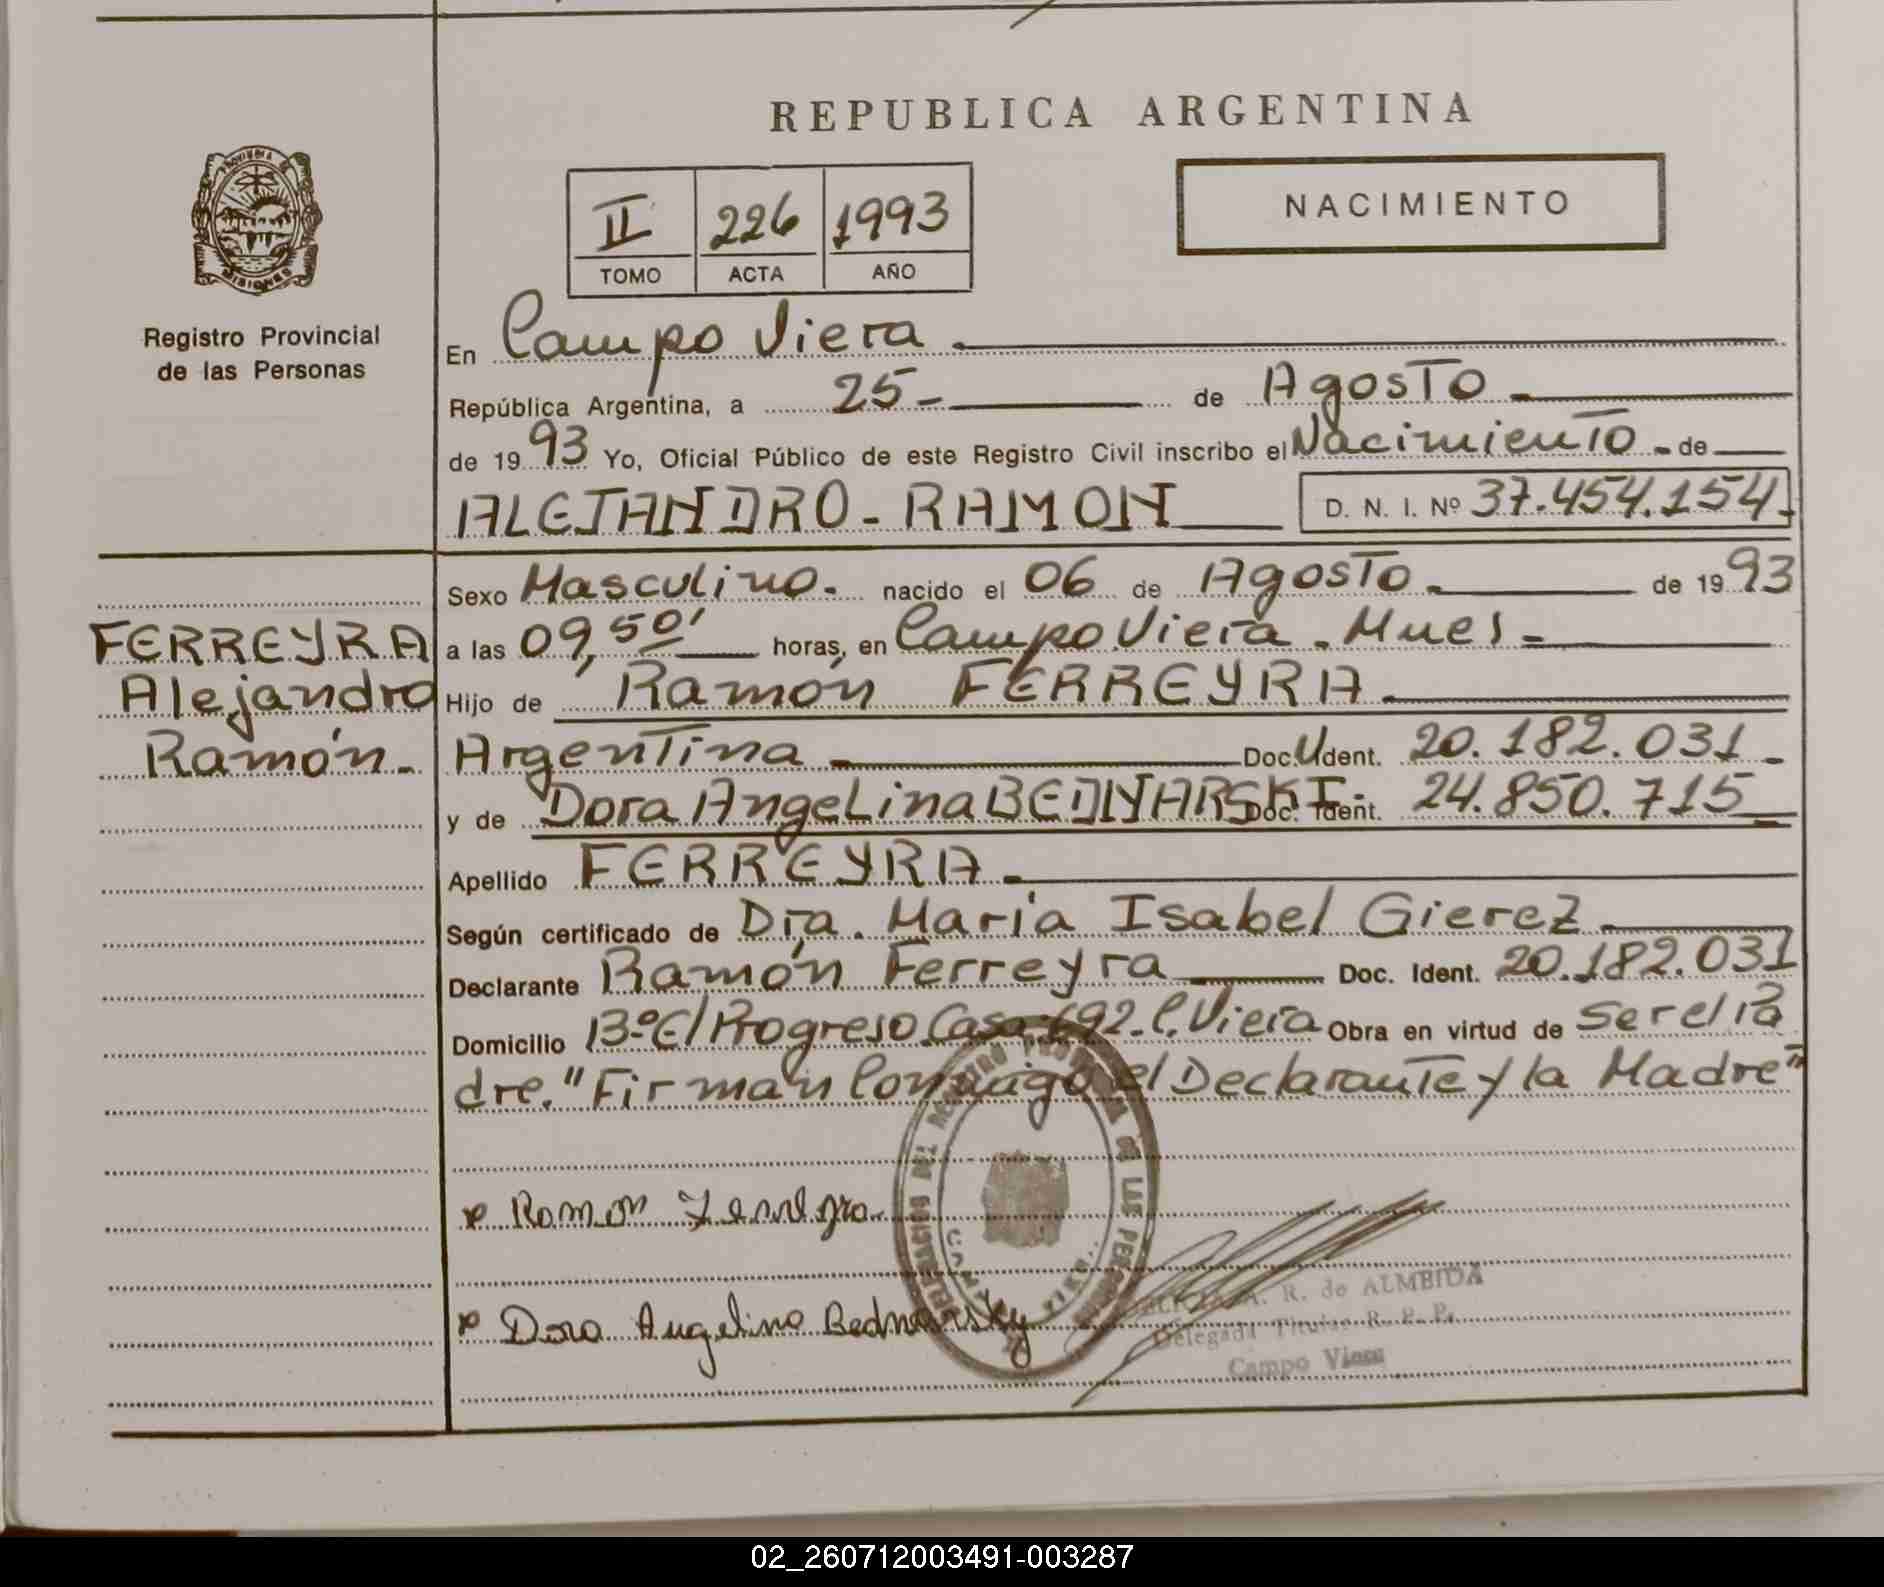 REPUBLICA ARGENTINA
NACIMIENTO
II 226 1993
TOMO ACTA AÑO
PROVINCIA DE
MISIONES
Registro Provincial
de las Personas
En Campo Viera
República Argentina, a 25- de Agosto
de 1993 Yo, Oficial Público de este Registro Civil inscribo el Nacimiento - de
ALEJANDRO - RAMON D. N. I. Nº 37.454.154
Sexo Masculino. nacido el 06 de Agosto. de 1993
FERREYRA
Alejandro
Ramón.
a las 09,50' horas, en Campo Viera. Mnes
Hijo de Ramón FERREYRA
Argentina Doc. U Ident. 20.182.031
y de Dora Angelina BEDNARSKI Doc. Ident. 24.850.715
Apellido FERREYRA
Según certificado de Dra. María Isabel Gierez
Declarante Ramón Ferreyra Doc. Ident. 20.182.031
Domicilio Bº El Progreso Casa 692. C. Viera Obra en virtud de Ser el Pa
dre. "Firman Conmigo el Declarante y la Madre"
Ramon Ferreyra
Dora Angelina Bednarsky
A. R. de ALMEIDA
Delegada Titular R. P. P.
Campo Viera
02_260712003491-003287